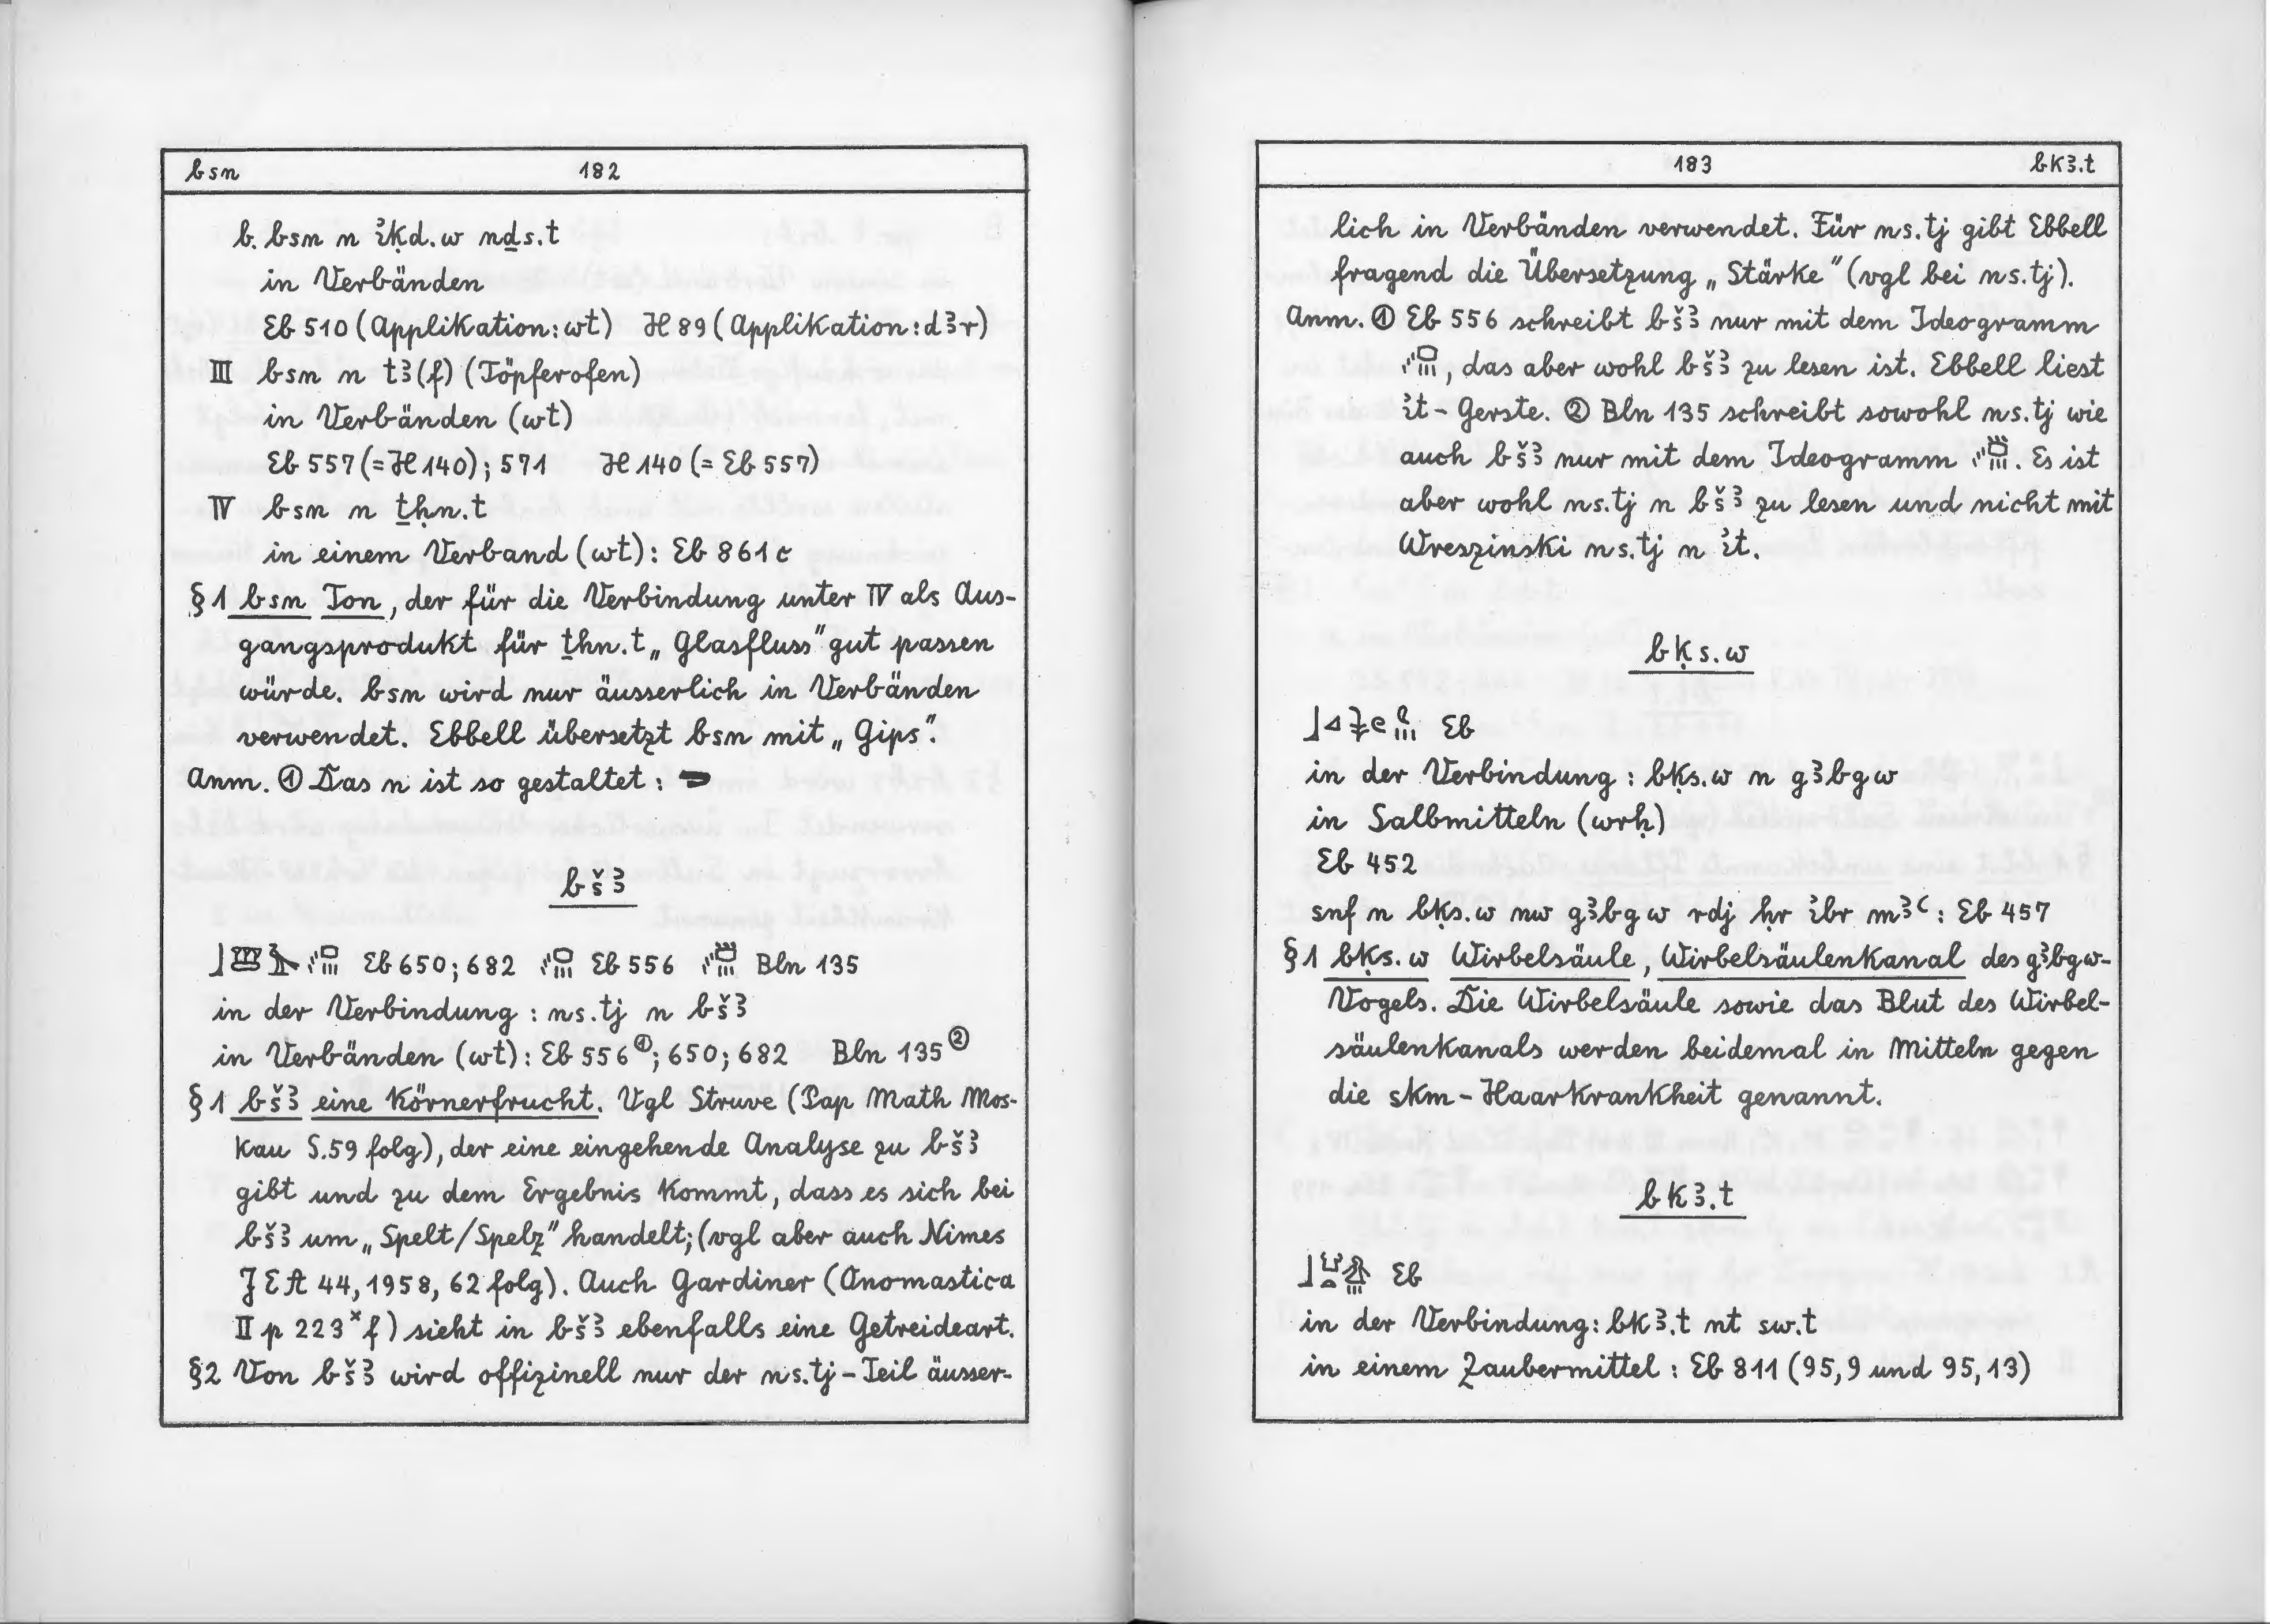 bsn 182
b. bsn n ỉḳd.w nḏs.t
in Verbänden
Eb 510 (Applikation: wt) H 89 (Applikation: dꜣr)
III bsn n tꜣ(f) (Töpferofen)
in Verbänden (wt)
Eb 557 (= H 140); 571 H 140 (= Eb 557)
IV bsn n ṯḥn.t
in einem Verband (wt): Eb 861 c
§1 bsn Ton, der für die Verbindung unter IV als Aus-
gangsprodukt für ṯhn.t „Glasfluss" gut passen
würde. bsn wird nur äusserlich in Verbänden
verwendet. Ebbell übersetzt bsn mit „Gips".
Anm. ① Das n ist so gestaltet:
bšꜣ
Eb 650; 682 Eb 556 Bln 135
in der Verbindung: ns.tj n bšꜣ
in Verbänden (wt): Eb 556①; 650; 682 Bln 135②
§1 bšꜣ eine Körnerfrucht. Vgl Struve (Pap Math Mos-
kau S. 59 folg), der eine eingehende Analyse zu bšꜣ
gibt und zu dem Ergebnis kommt, dass es sich bei
bšꜣ um „Spelt/Spelz" handelt; (vgl aber auch Nimes
JEA 44, 1958, 62 folg). Auch Gardiner (Onomastica
II p 223ˣ f) sieht in bšꜣ ebenfalls eine Getreideart.
§2 Von bšꜣ wird offizinell nur der ns.tj-Teil äusser-
183 bkꜣ.t
lich in Verbänden verwendet. Für ns.tj gibt Ebbell
fragend die Übersetzung „Stärke" (vgl bei ns.tj).
Anm. ① Eb 556 schreibt bšꜣ nur mit dem Ideogramm
, das aber wohl bšꜣ zu lesen ist. Ebbell liest
ỉt - Gerste. ② Bln 135 schreibt sowohl ns.tj wie
auch bšꜣ nur mit dem Ideogramm . Es ist
aber wohl ns.tj n bšꜣ zu lesen und nicht mit
Wreszinski ns.tj n ỉt.
bḳs.w
Eb
in der Verbindung: bḳs.w n gꜣbgw
in Salbmitteln (wrḥ)
Eb 452
snf n bḳs.w nw gꜣbgw rdj ḥr ỉbr mꜣꜥ: Eb 457
§1 bḳs.w Wirbelsäule, Wirbelsäulenkanal des gꜣbgw-
Vogels. Die Wirbelsäule sowie das Blut des Wirbel-
säulenkanals werden beidemal in Mitteln gegen
die skm-Haarkrankheit genannt.
bkꜣ.t
Eb
in der Verbindung: bkꜣ.t nt sw.t
in einem Zaubermittel: Eb 811 (95,9 und 95,13)